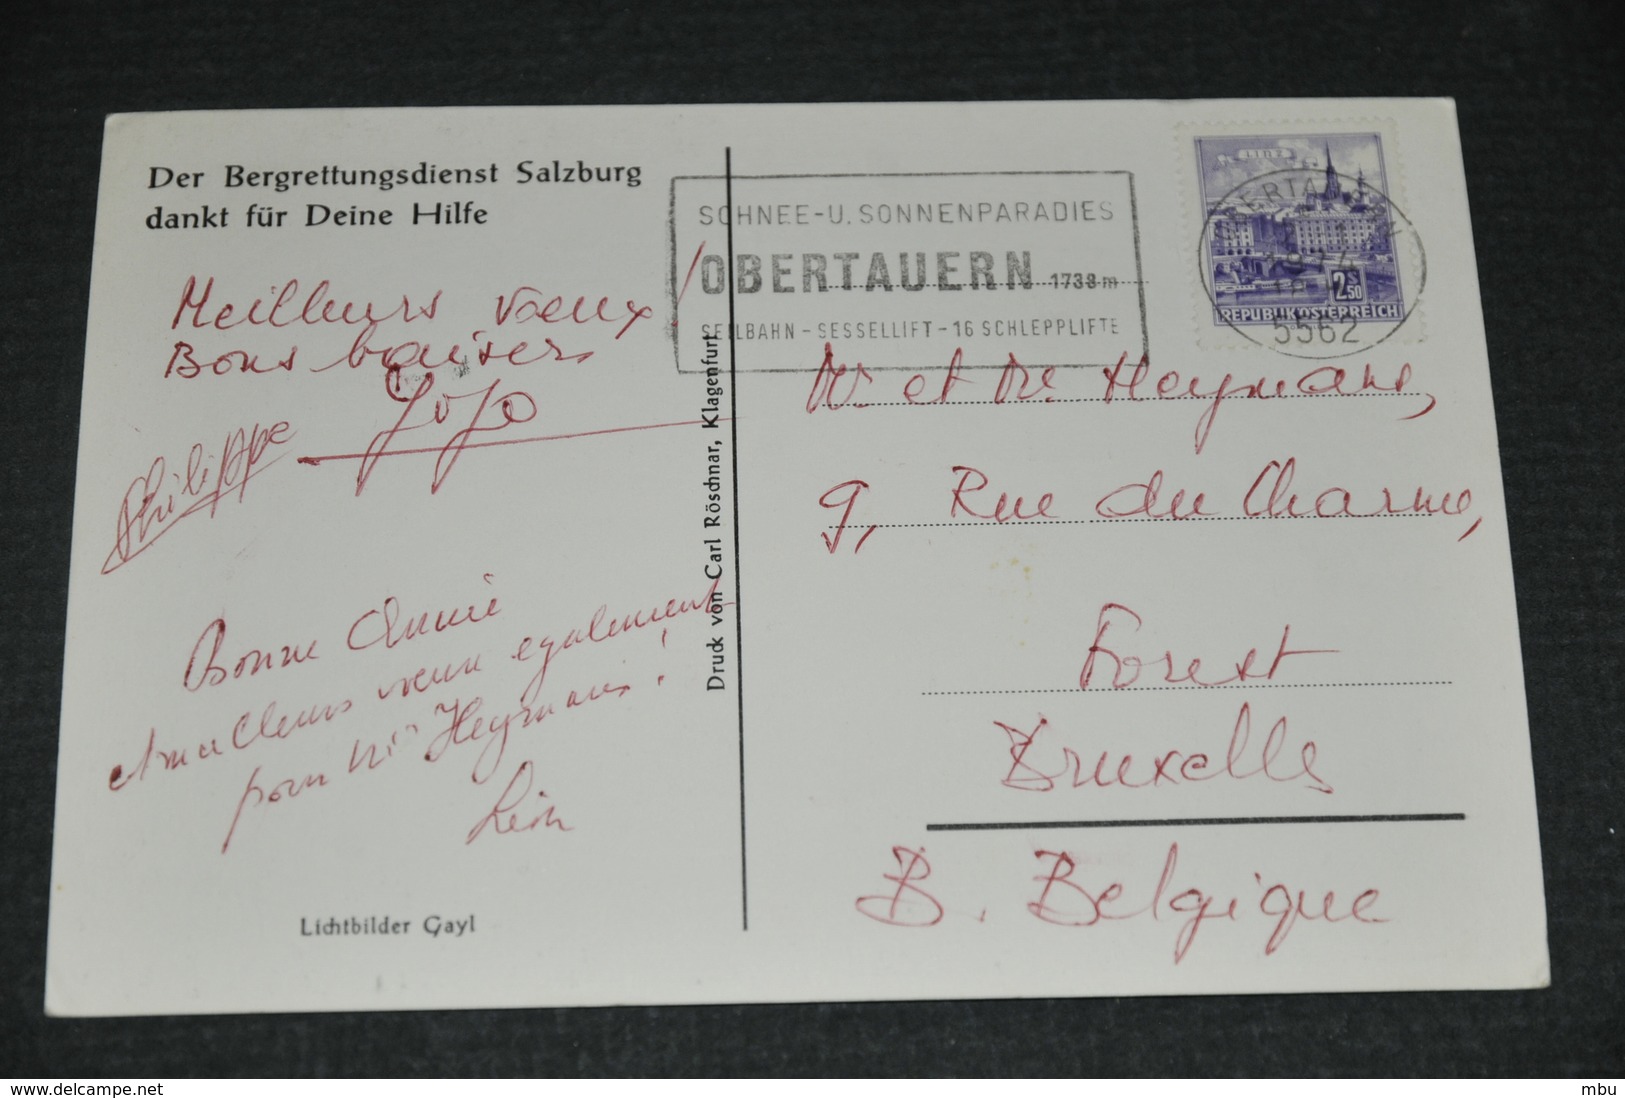 Der Bergrettungsdienst Salzburg
dankt für Deine Hilfe
Meilleurs voeux !
Bons baisers
JoJo
Philippe
Bonne Année
et meilleurs voeux également
pour Mr Heymans !
Léon
Lichtbilder Gayl
Druck von Carl Röschnar, Klagenfurt
SCHNEE-U. SONNENPARADIES
OBERTAUERN 1738 m
SEILBAHN - SESSELLIFT - 16 SCHLEPPLIFTE
LINZ
2S50
REPUBLIK ÖSTERREICH
OBERTAUERN
5562
Mr et Me Heymans,
9, Rue du Charme,
Forest
Bruxelles
B. Belgique
www.delcampe.net
mbu